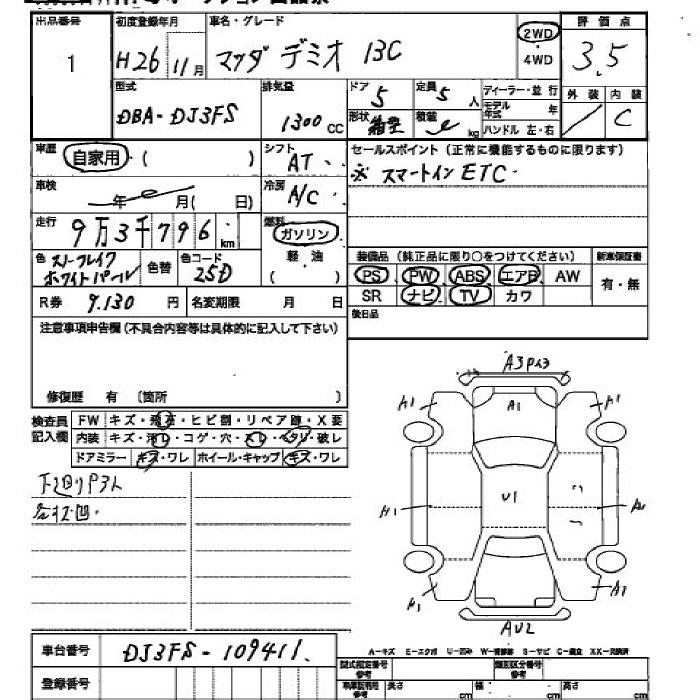 出品番号 初度登録年月 車名・グレード 評価点
1 H26 11月 マツダ デミオ 13C 2WD 3.5
4WD
型式 排気量 ドア 定員 ディーラー・並行 外装 内装
DBA-DJ3FS 1300CC 5 5人 モデル年式 年 C
形状 箱型 積載 kg ハンドル 左・右
車歴 自家用・( ) シフト AT セールスポイント(正常に機能するものに限ります)
※ スマートイン ETC
車検 年 月( 日) 冷房 A/C
走行 9万3千796km 燃料 ガソリン
軽・油
( )
色 スノーフレイクホワイトパール 色替 色コード 25D
装備品(純正品に限り○をつけてください) 新車保証書
PS PW ABS エアB AW 有・無
SR ナビ TV カワ
R券 9.130円 名変期限 月 日
後日品
注意事項申告欄(不具合内容等は具体的に記入して下さい)
修復歴 有 〔箇所 〕
検査員記入欄 FW キズ・飛石・ヒビ割・リペア跡・X要
内装 キズ・汚レ・コゲ・穴・スレ・ヘタリ・破レ
ドアミラー キズ・ワレ ホイール・キャップ キズ・ワレ
下廻りPスレ
A1 A1 A1
U1
A1
A1
AU2
車台番号 DJ3FS-109411
登録番号
A-キズ E-エクボ U-凹み W-補修跡 S-サビ C-腐食 XX-交換済
型式指定番号 参考 類別区分番号 参考
長さ cm 幅 cm 高さ cm